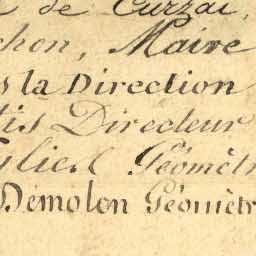 de Curzai,
chon, Maire
s la Direction
tis Directeur
Géomètr
Démolon Géomètr